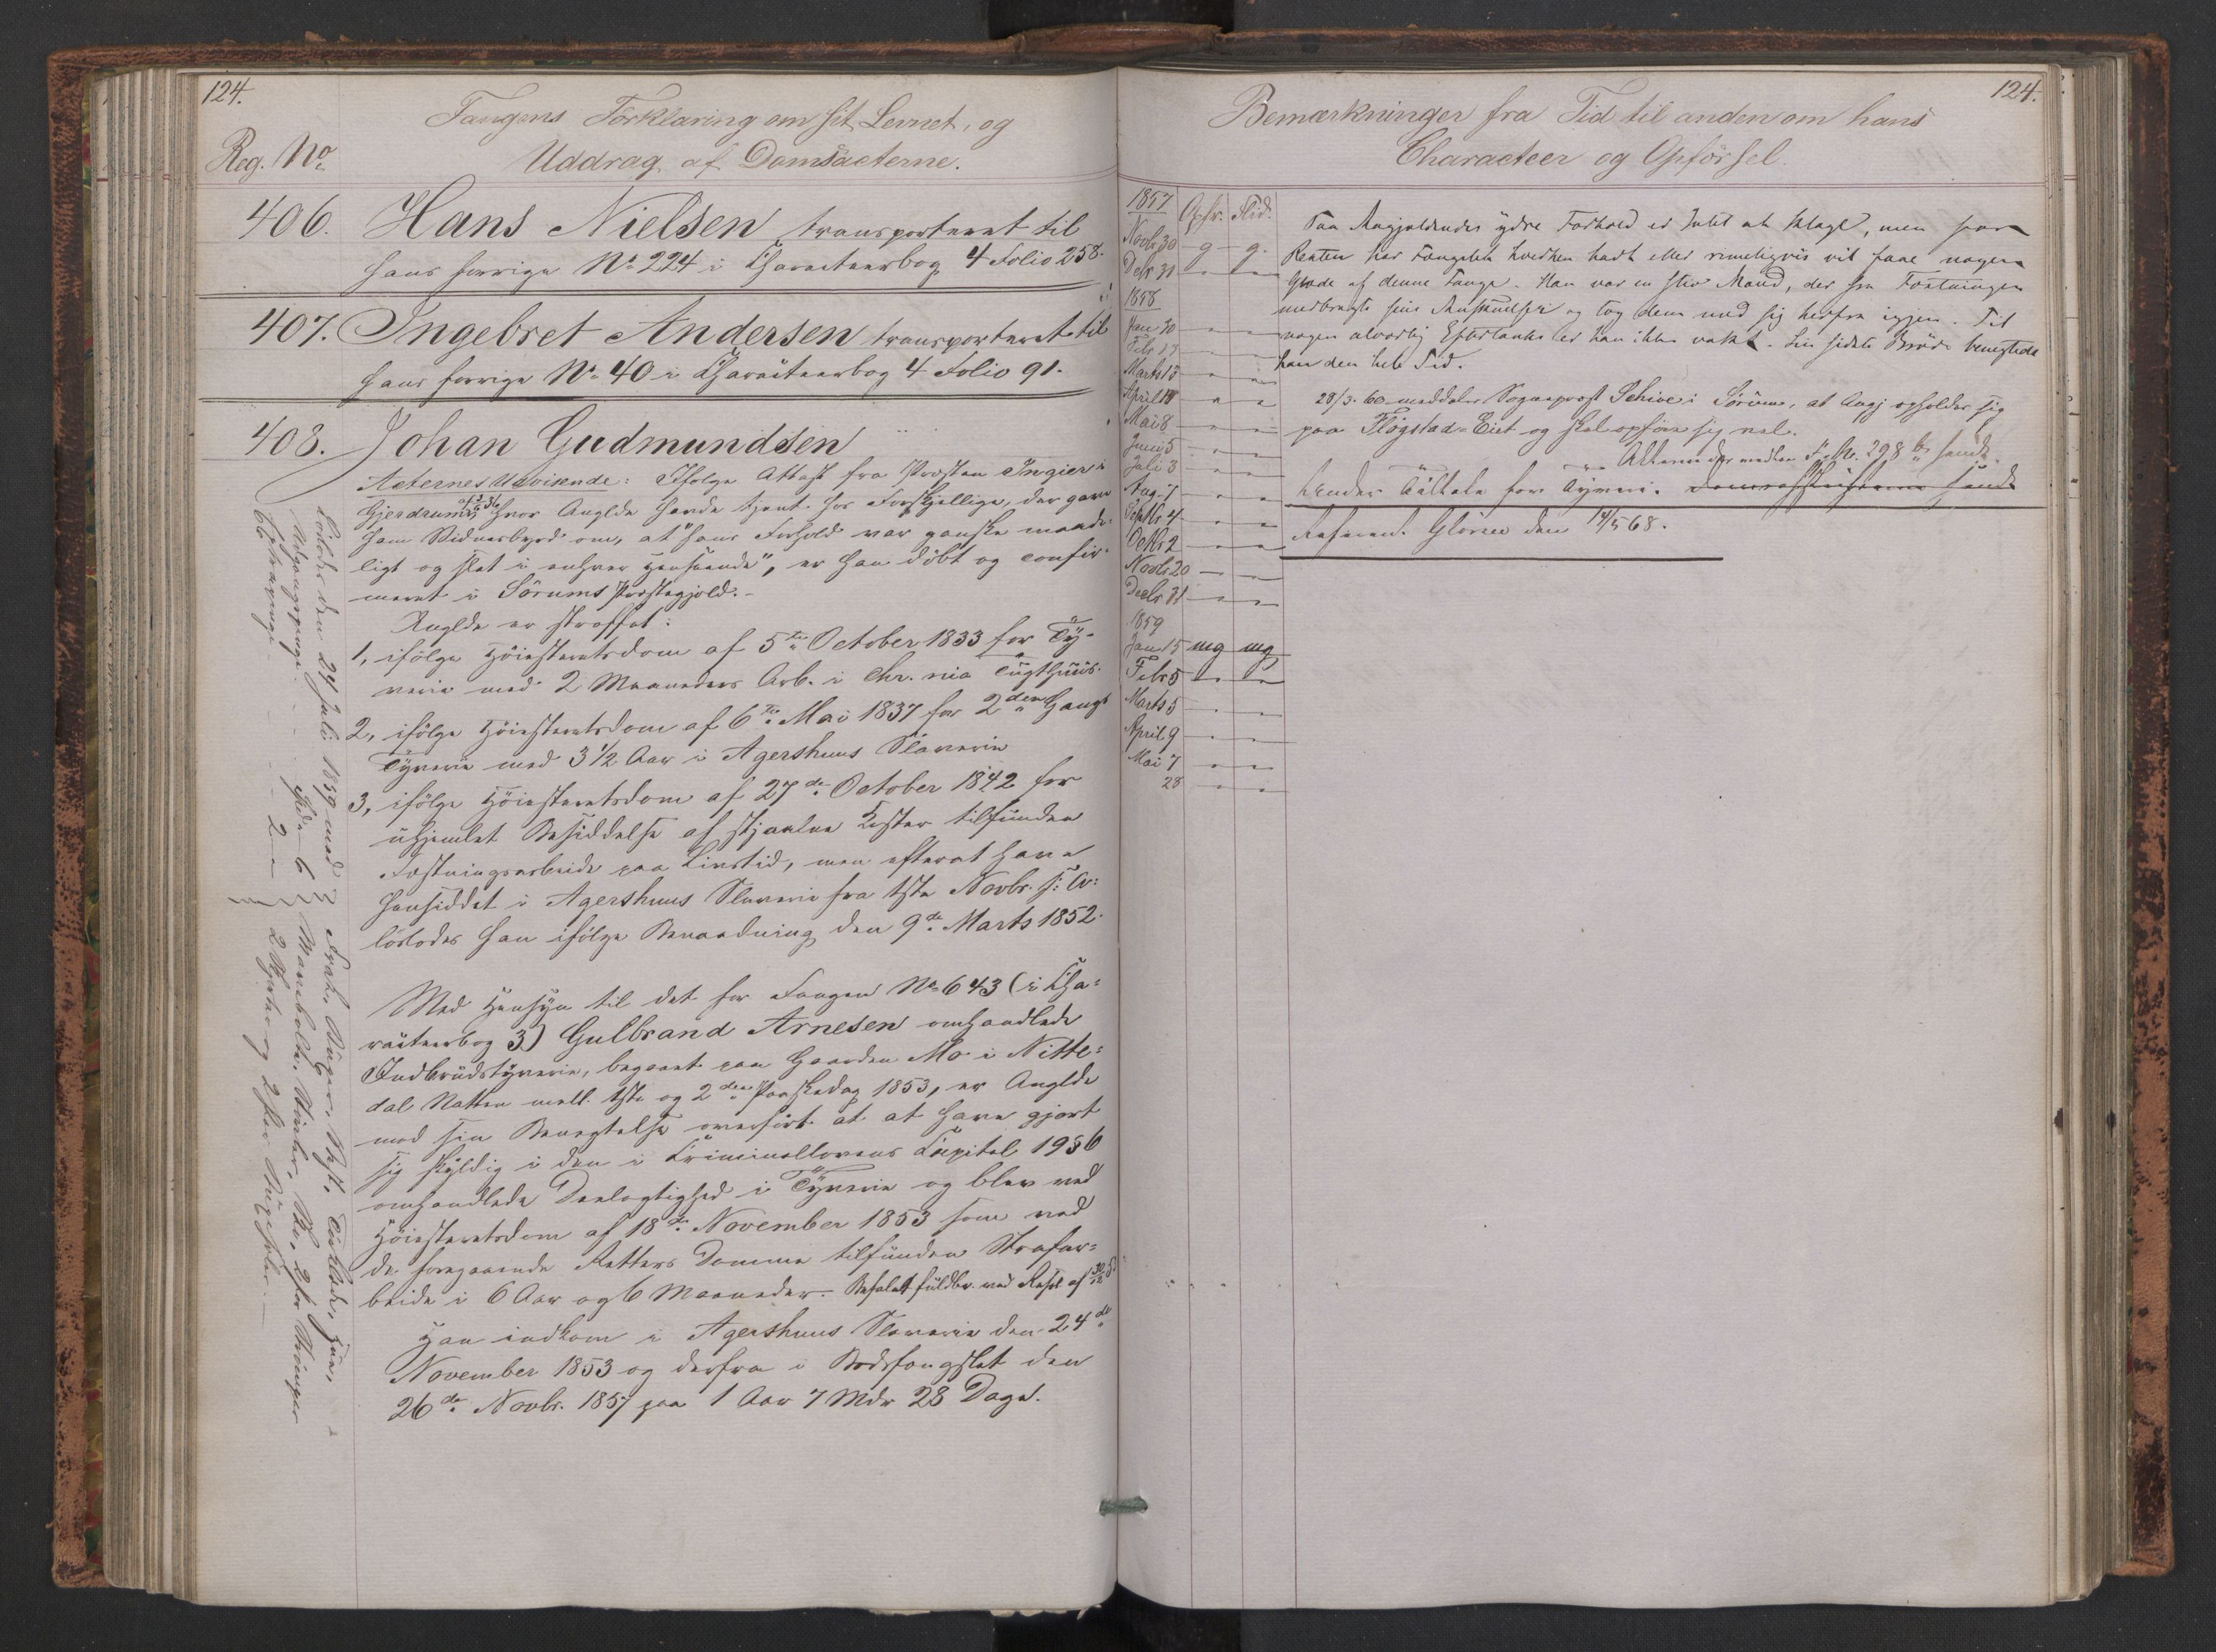 124.
Reg. No
Fangens Forklaring om sit Levnet, og
Uddrag af Domsacterne.
406. Hans Nielsen transporteret til
hans forrige No 224 i Characteerbog 4 Folio 258.
407. Ingebret Andersen transporteret til
hans forrige No 40 i Characteerbog 4 Folio 91.
408. Johan Gudmundsen
Acternes Udvisende: Ifølge Attest fra Presten Ingier i
Gjerdrum, hvor Anglde havde tjent hos Forskjellige, der gave
ham Vidnesbyrd om, at "hans Forhold var ganske maade-
ligt og slet i enhver Henseende", er han döbt og confir-
meret i Sörums Prestegjeld.-
Anglde er straffet:
1, ifölge Höiesteretsdom af 5te October 1833 for Ty-
verie med 2 Maaneders Arb. i Chr.nia Tugthuus.
2, ifölge Höiesteretsdom af 6te Mai 1837 for 2den Gangs
Tyverie med 3 1/2 Aar i Agershuus Slaverie
3, ifölge Höiesteretsdom af 27de October 1842 for
uhjemlet Besiddelse af stjaalne Koster tilfunden
Fæstningsarbeide paa Livstid, men efterat have
hensiddet i Agershuus Slaverie fra 1ste Novbr. s: A:
löslodes han ifölge Benaadning den 9de Marts 1852.
Med Hensyn til det for Fangen No 643 (i Cha-
racteerbog 3) Gulbrand Arnesen omhandlede
Indbrudstyverie, begaaet paa Gaarden Mo i Nitte-
dal Natten mell. 1ste og 2den Paaskedag 1853, er Anglde
mod sin Benegtelse overfört at at have gjort
sig skyldig i den i Criminallovens Capitel 19 § 6
omhandlede Deelagtighed i Tyverie og blev ved
Höiesteretsdom af 18de November 1853 som ved
de foregaaende Retters Domme tilfunden Strafar-
beide i 6 Aar og 6 Maaneder. Befalet fuldbr. ved Resol af 30/12 53
Han indkom i Agershuus Slaverie den 24de
November 1853 og derfra i Bodsfængslet den
26de Novbr. 1857 paa 1 Aar 7 Mdr 28 Dage.
Löslodes den 24 Juli 1859 med Frak, Buxer, Vest,
124.
Bemærkninger fra Tid til anden om hans
Characteer og Opförsel.
1857 Opfr. Flid.
Novbr 30 g g.
Debr 31 " "
1858
Jan 30 " "
Febr 13 " "
Marts 13 " "
April 18 " "
Mai 8 " "
Juni 5 " "
Juli 3 " "
Aug. 7 " "
Septbr 4 " "
Octbr 2 " "
Novbr 20 " "
Decbr. 31 " "
1859
Jan 15 mg mg
Febr 5 " "
Marts 5 " "
April 9 " "
Mai 7 " "
28 " "
Paa Angjældendes ydre Forhold er Intet at klage, men hver
Renten har Fængslet hverken havt eller rimeligvis vil faae nogen
Glæde af denne Fange. Han var en stiv Mand, der fra Fæstningen
medbragte sine Anskuelser og tog dem med sig herfra igjen. Til
nogen alvorlig Eftertanke er han ikke vakt. Sin sidste Bröde benegtede
han den hele Tid.
28/3. 60 meddeler Sogneprest Schive i Sörum, at Angj opholder sig
paa Flögstad-Eiet og skal opföre sig vel.
Akterne for medlem F. No. 298 b, sendt
under Tiltale for Tyveri.
Refereret Glörsen den 14/5 68.